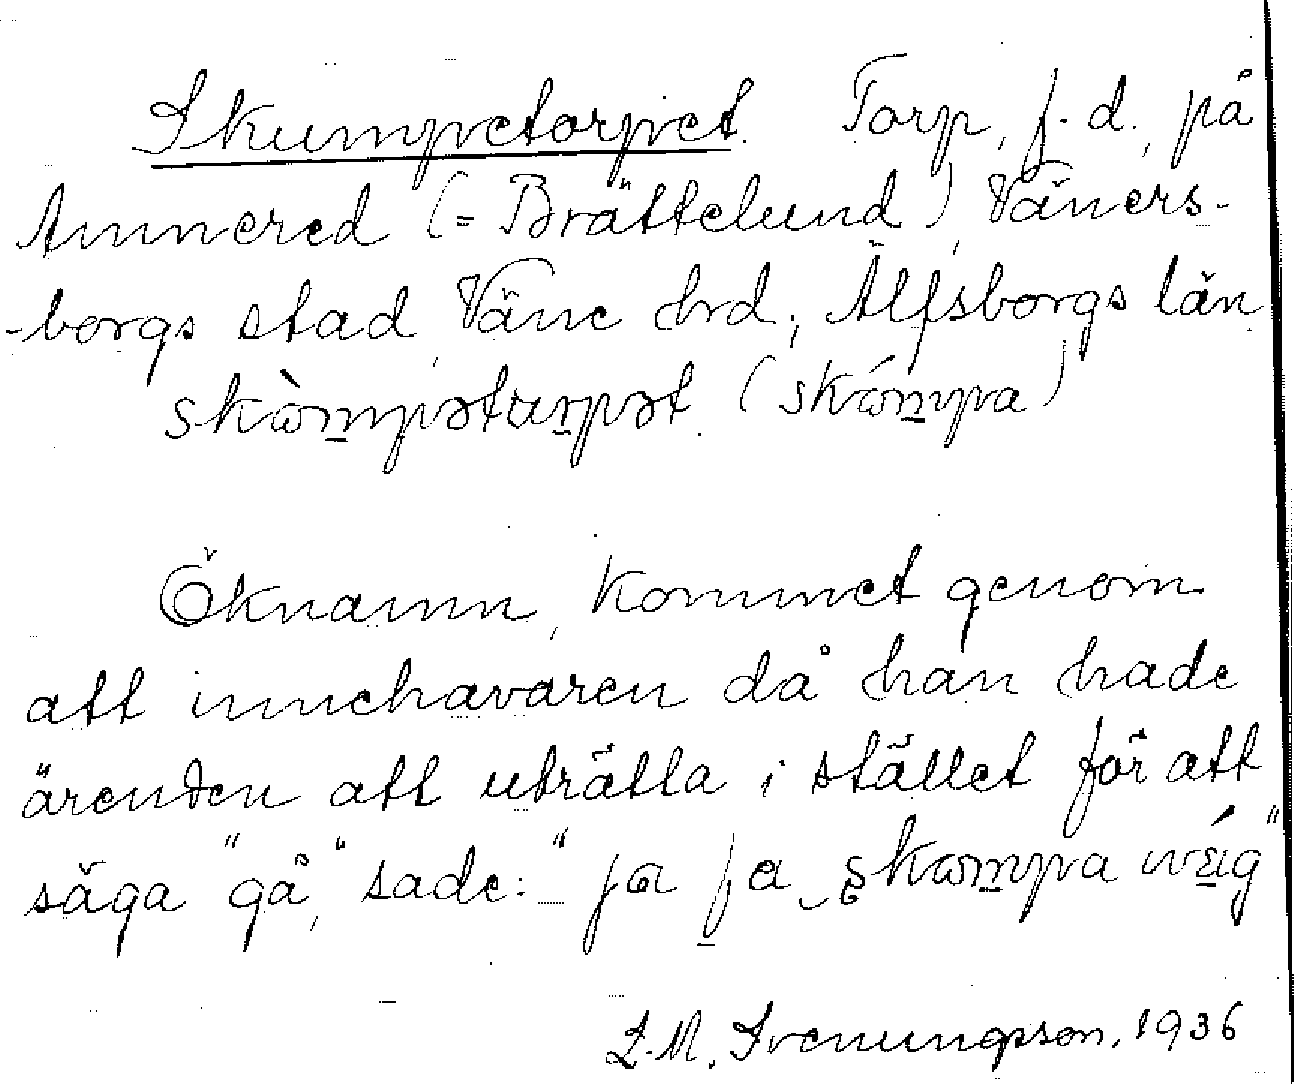 Skumpetorpet. Torp, f. d., på
Annered (= Brättelund), Väners-
-borgs stad, Väne hrd, Älfsborgs län
skòmpəturpət (skómpa)
Öknamn, kommet genom
att innehavaren då han hade
ärenden att uträtta i stället för att
säga "gå", sade: "ja fa skompa
L. M. Svenungsson, 1936